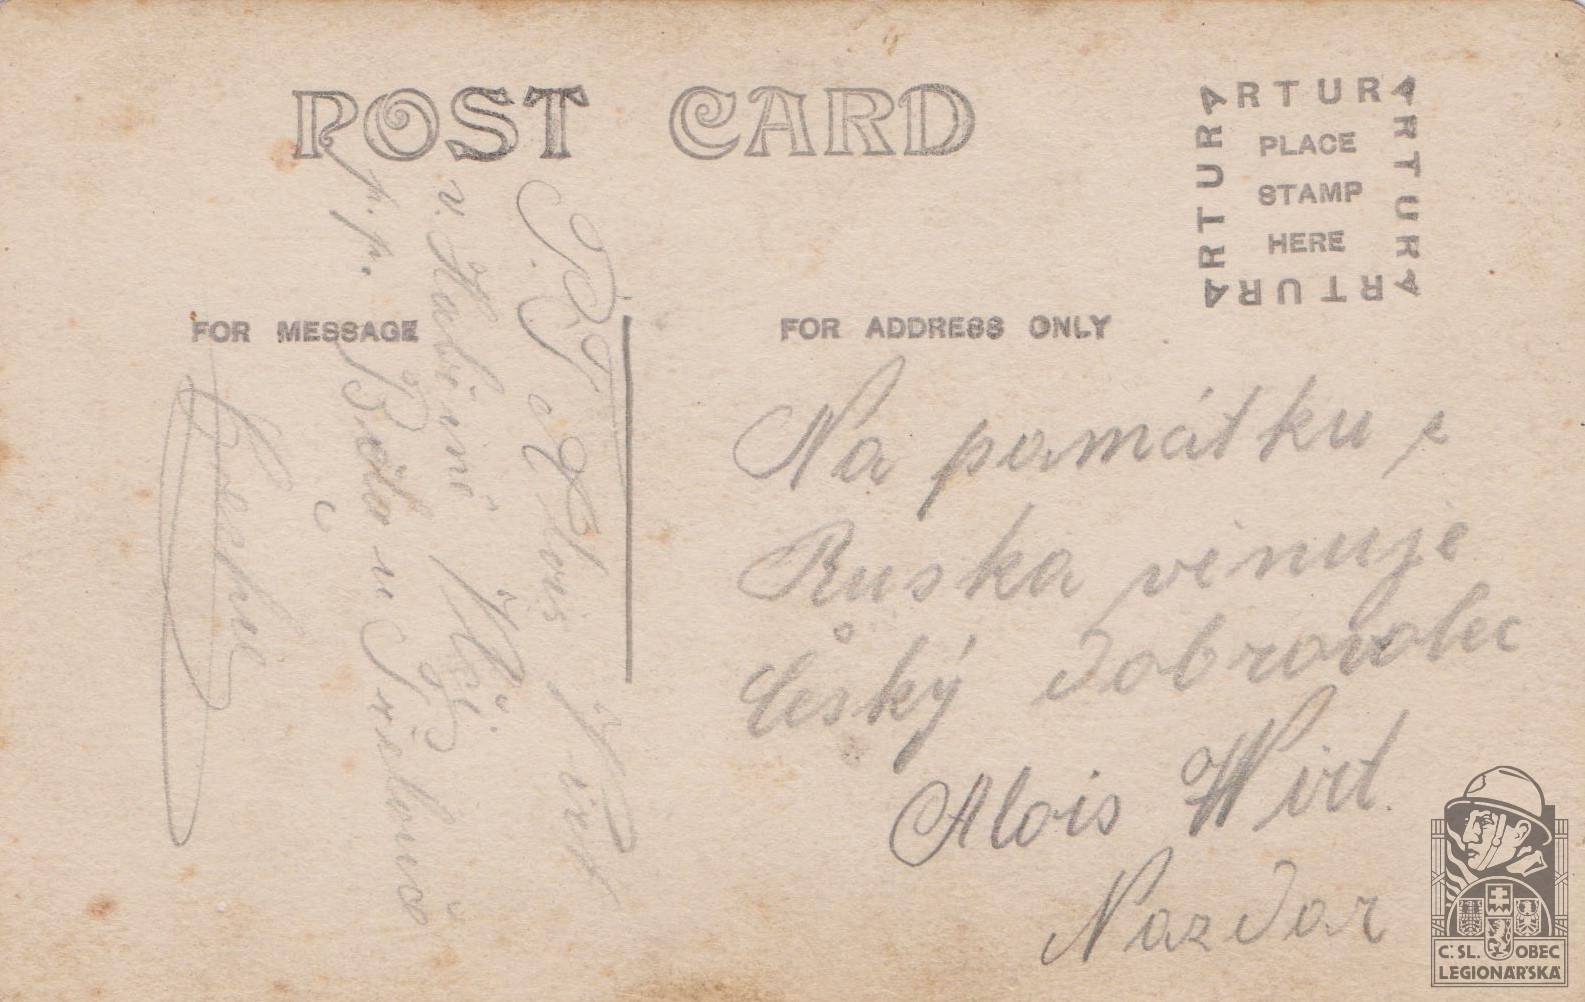 POST CARD
ARTURA
ARTURA
ARTURA
ARTURA
PLACE
STAMP
HERE
FOR MESSAGE
FOR ADDRESS ONLY
Na památku z
Ruska věnuje
Český dobrovolec
Alois Wirt.
Nazdar
Alois Wirt
v
p. p. Bělá u
Čechy
Č. SL. OBEC
LEGIONÁŘSKÁ